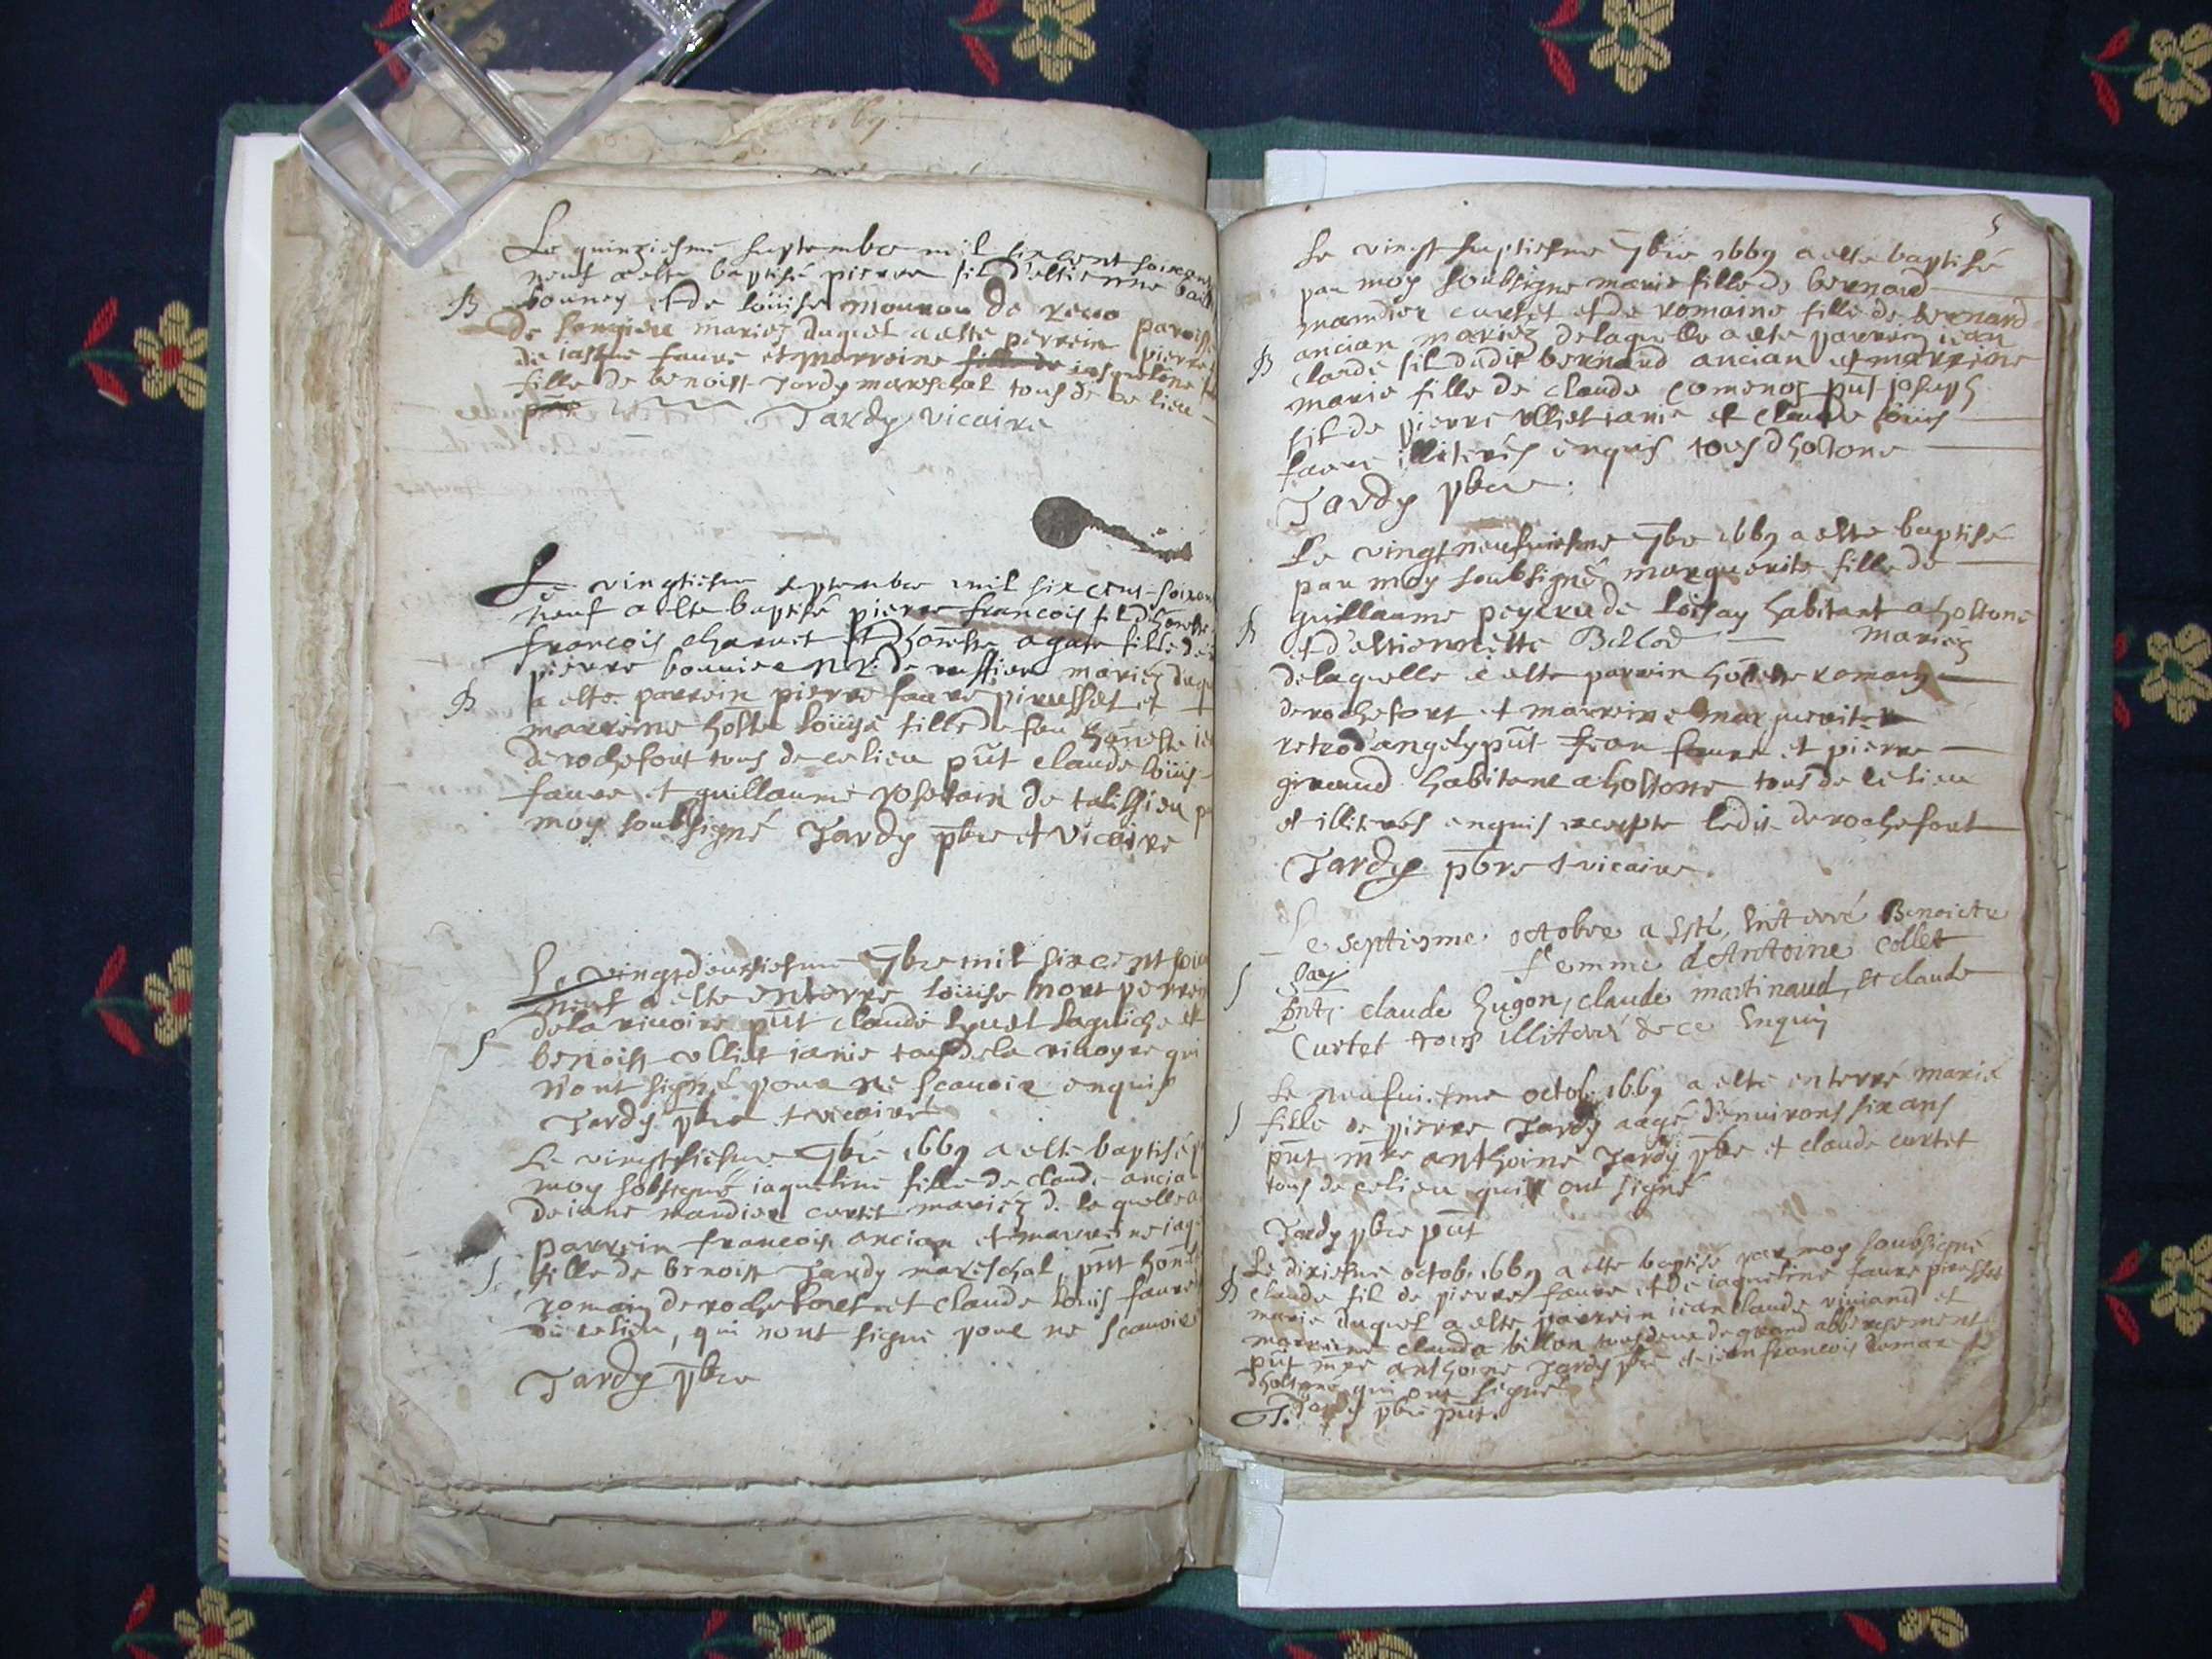 Le quinziesme septembre mil six cent soixante
neuf a este baptisé pierre fil d'estienne
bouney et de loüise mouron de
de songieu mariez duquel a este perrein pierre
de iasque faure et marreine fille de iasqueline
fille de benoist Tardy mareschal tous de ce lieu
Tardy vicaire
B
Le vingtiesme septembre mil six cent soixan
neuf a este baptisé pierre francois fil d'honeste
francois charuet et d'honeste agate fille de
pierre bouuier de ruffieu mariez duq
B
a este parrein pierre faure pirusset et
marreine hoste loüyse fille de feu honeste
de rochefort tous de ce lieu pnt claude loüis
faure et guillaume rosetain de talissieu p
moy soubsigné Tardy pbre et vicaire
Le vingtdeuxiesme 7bre mil six cent soix
neuf a este enterre loüise mort perre
de la riuoire pnt claude lyuet laguiche et
S
benoist vlliet ianie tous de la riuoyre qui
n'ont signé pour ne scauoir enquis
Tardy pbre et vicaire
Le vingtsiesme 7bre 1669 a este baptisé p
moy sobsigné iaqueline fille de claude ancian
de iane mandier curtet mariez de laquelle a
parrein francois ancian et marreine iaq
S
fille de benoist Tardy mareschal, pnt hone
romain de rochefort et claude louis faure
du ce lieu, qui nont signe pour ne scauoir
Tardy pbre
5
Le vingt septiesme 7bre 1669 a este baptisé
par moy soubsigne marie fille de bernard
mandier curtet et de romaine fille de bernard
ancian mariez de laquelle a este parrein iean
B
claude fil dudit bernard ancian et marreine
marie fille de claude comenoz pnt joseph
fil de pierre vlliet ianie et claude loüis
faure illiterés enquis tous d'hostone
Tardy pbre.
Le vingt neufuiesme 7bre 1669 a este baptisé
par moy soubsigné marguerite fille de
guillaume peyzeu de loisay habitant a hostone
B
et d'estiennette Billod mariez
de laquelle a este parrein honeste romain
de rochefort et marreine marguerite
retrod'angely pnt jean faure et pierre
giraud habitant a hostone tous de ce lieu
et illiterés enquis excepte ledit de rochefort
Tardy pbre et vicaire.
Le septiesme octobre a esté enterré Benoicte
Gay femme d'Antoine collet
S
pnts claude hugon, claude martinaud, et claude
Curtet tous illiterré de ce Enquis
Le neufuiesme octob. 1669 a este enterré marie
S
fille de pierre Tardy aagé d'enuirons six ans
pnt mre anthoine Tardy pbre et claude curtet
tous de ce lieu qui ont signé
Tardy pbre pnt
Le dixiesme octob. 1669 a este baptisé par moy soubsigné
B
claude fil de pierre faure et de iaqueline faure pirusset
marie duquel a este parrein iean claude viuiand et
marreine clauda billon tous deux de grand abbergement
pnt mre anthoine Tardy pbre et iean francois domar
d'hostone qui ont signé
Tardy pbre pnt.